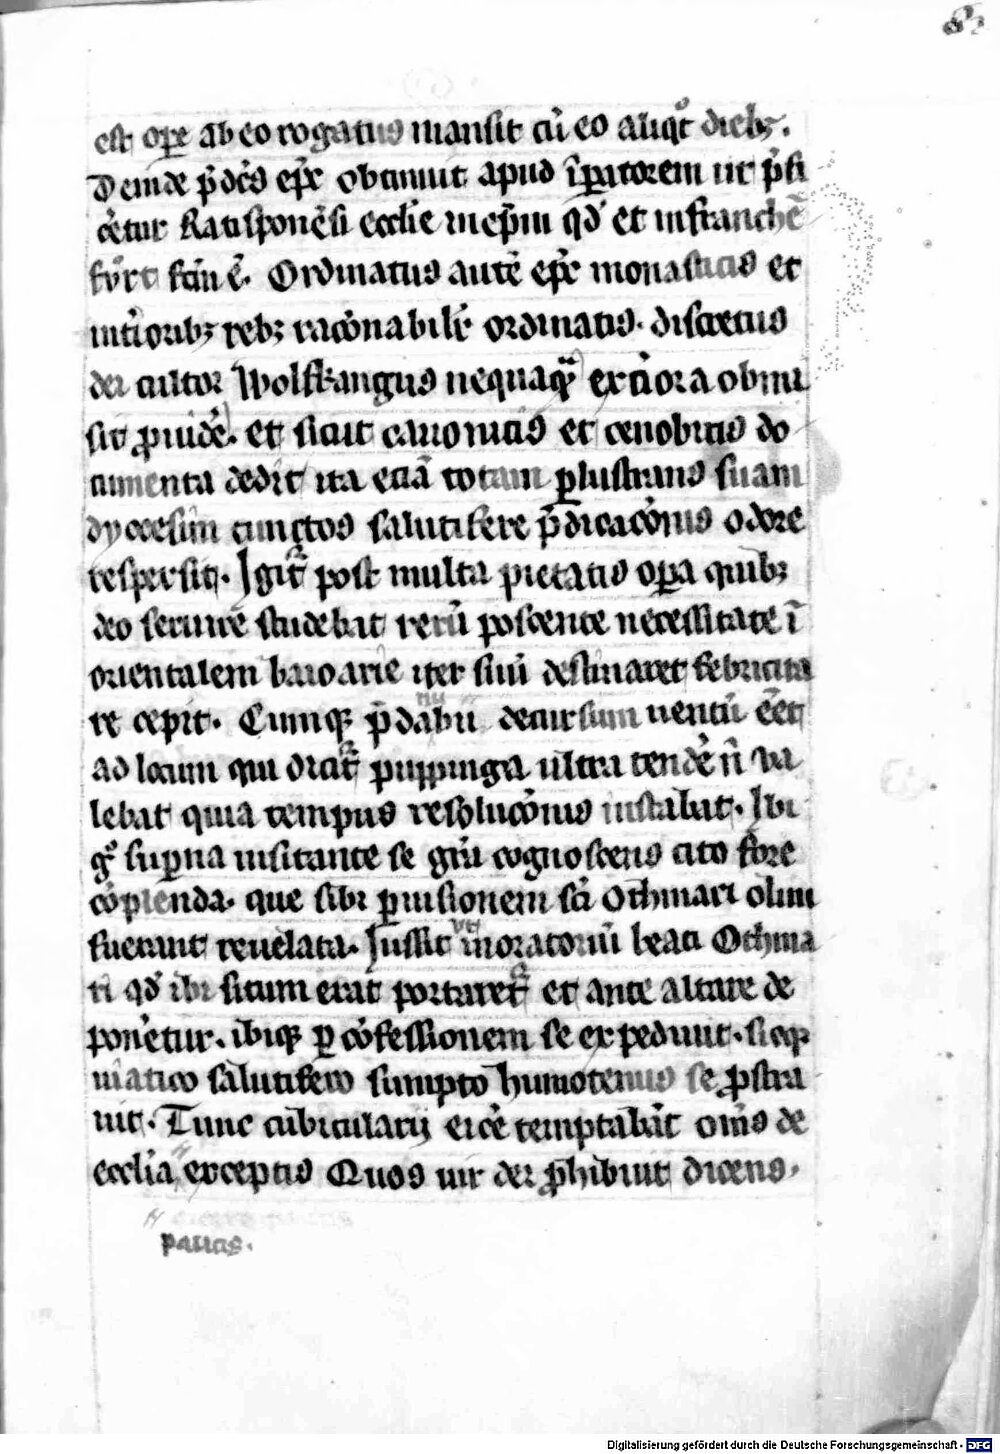 83
est oꝑe ab eo rogatus mansit cū eo aliqͦt dieb⁊.
Deinde p̄dc̄s ep̄c obtinuit apud īꝑatorem ut p̄fi
cēt̉ur Ratisponēsi ecclie in ep̄m qd̄ et in franchē
fůrt fc̄m ē. Ordinatus autē ep̄c monasticis et
int̉iorib⁊ reb⁊ rac̄onabilit̉ ordinatis. discretus
dei cultor Wolfkangus nequaqᷓ ext̉iora obmi
sit ꝓuid̉e. et sicut canonicis et cenobitis do
cumenta dedit ita eciā totam ꝑlustrans suam
dyocesim cunctos salutifere p̄dicac̄onis odore
respersit. Igit᷑ post multa pietatis oꝑa quib⁊
deo seruire studebat rerū poscente necessitate ī
orientalem baioarie iter suū destinaret febricita
re cepit. Cumqꝫ p̄ danubij decursum uentū eēt
ad locum qui dicit᷑ puppinga ultra tend̉e n̄ va
lebat quia tempus resoluc̄onis instabat. Ibi
gͦ suꝑna uisitante se gr̄a cognoscens cito fore
cōplenda. que sibi ꝑ uisionem sc̄i Othmari olim
fuerant reuelata. Jussit in oratoriū beati Othma
ri qd̄ ibi situm erat portaret᷑ et ante altare de
pon̉etur. ibiqꝫ ꝑ cōfessionem se expediuit. sicqꝫ
uiatico salutifero sumpto humotenus se ꝓstra
uit. Tunc cubicularij eic̉e temptabāt om̄s de
ecclia exceptis Quos uir dei ꝓhibuit dicens.
paucis.
Digitalisierung gefördert durch die Deutsche Forschungsgemeinschaft - DFG